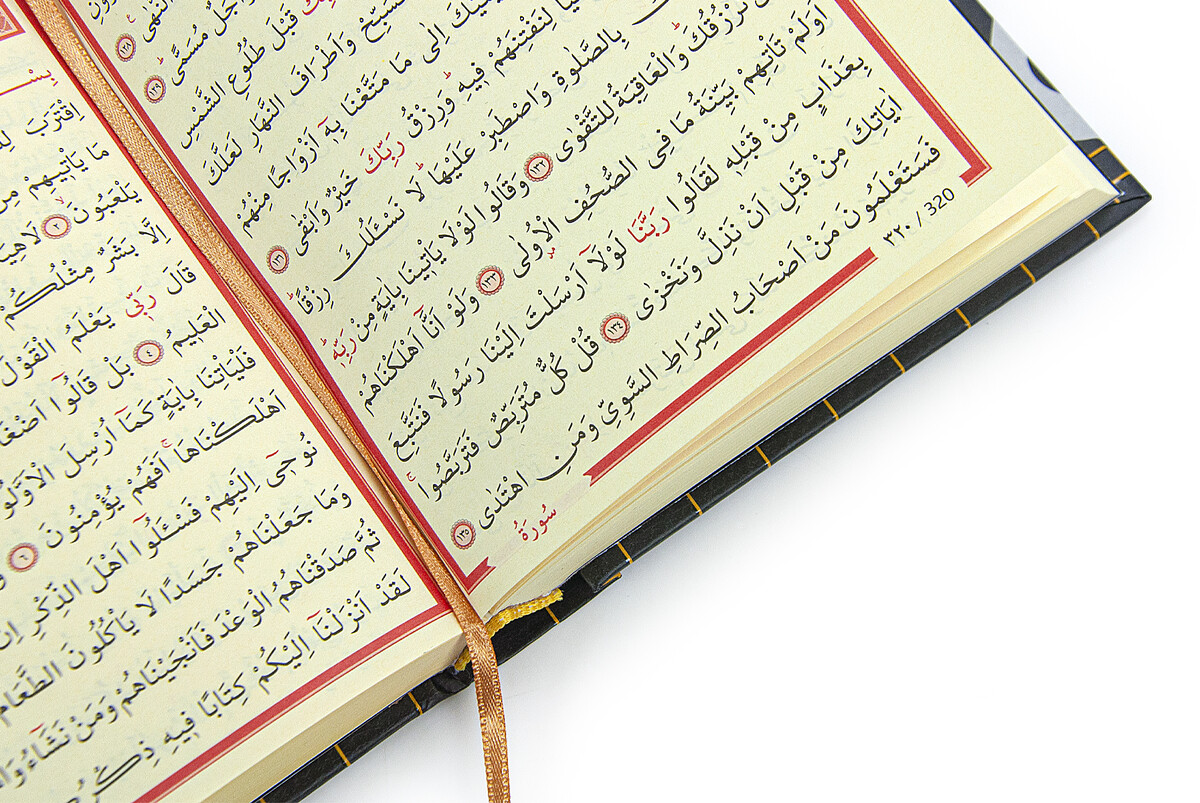 النُّهٰى ﴿١٢٨﴾
وَاَجَلٌ مُسَمًّى ﴿١٢٩﴾
قَبْلَ طُلُوعِ الشَّمْسِ
وَاَطْرَافَ النَّهَارِ لَعَلَّكَ
اِلٰى مَا مَتَّعْنَا بِهٖٓ اَزْوَاجًا مِنْهُمْ
لِنَفْتِنَهُمْ فٖيهِ وَرِزْقُ رَبِّكَ خَيْرٌ وَاَبْقٰى ﴿١٣١﴾
بِالصَّلٰوةِ وَاصْطَبِرْ عَلَيْهَا لَا نَسْـَٔلُكَ رِزْقًا
نَرْزُقُكَ وَالْعَاقِبَةُ لِلتَّقْوٰى ﴿١٣٢﴾ وَقَالُوا لَوْلَا يَأْتٖينَا بِاٰيَةٍ مِنْ رَبِّهٖ
اَوَلَمْ تَأْتِهِمْ بَيِّنَةُ مَا فِى الصُّحُفِ الْاُولٰى ﴿١٣٣﴾ وَلَوْ اَنَّٓا اَهْلَكْنَاهُمْ
بِعَذَابٍ مِنْ قَبْلِهٖ لَقَالُوا رَبَّنَا لَوْلَٓا اَرْسَلْتَ اِلَيْنَا رَسُولًا فَنَتَّبِعَ
اٰيَاتِكَ مِنْ قَبْلِ اَنْ نَذِلَّ وَنَخْزٰى ﴿١٣٤﴾ قُلْ كُلٌّ مُتَرَبِّصٌ فَتَرَبَّصُوا
فَسَتَعْلَمُونَ مَنْ اَصْحَابُ الصِّرَاطِ السَّوِىِّ وَمَنِ اهْتَدٰى ﴿١٣٥﴾
٣٢٠ / 320
سُورَةُ
اِقْتَرَبَ
مَا يَأْتٖيهِمْ مِنْ
يَلْعَبُونَ ﴿٢﴾ لَاهِيَةً
اِلَّا بَشَرٌ مِثْلُكُمْ
قَالَ رَبّٖى يَعْلَمُ الْقَوْلَ
الْعَلٖيمُ ﴿٤﴾ بَلْ قَالُٓوا اَضْغَاثُ
فَلْيَأْتِنَا بِاٰيَةٍ كَمَٓا اُرْسِلَ الْاَوَّلُونَ
اَهْلَكْنَاهَا اَفَهُمْ يُؤْمِنُونَ ﴿٦﴾
نُوحٖٓى اِلَيْهِمْ فَسْـَٔلُٓوا اَهْلَ الذِّكْرِ اِنْ
وَمَا جَعَلْنَاهُمْ جَسَدًا لَا يَأْكُلُونَ الطَّعَامَ
ثُمَّ صَدَقْنَاهُمُ الْوَعْدَ فَاَنْجَيْنَاهُمْ وَمَنْ نَشَٓاءُ
لَقَدْ اَنْزَلْنَٓا اِلَيْكُمْ كِتَابًا فٖيهِ ذِكْرُكُمْ